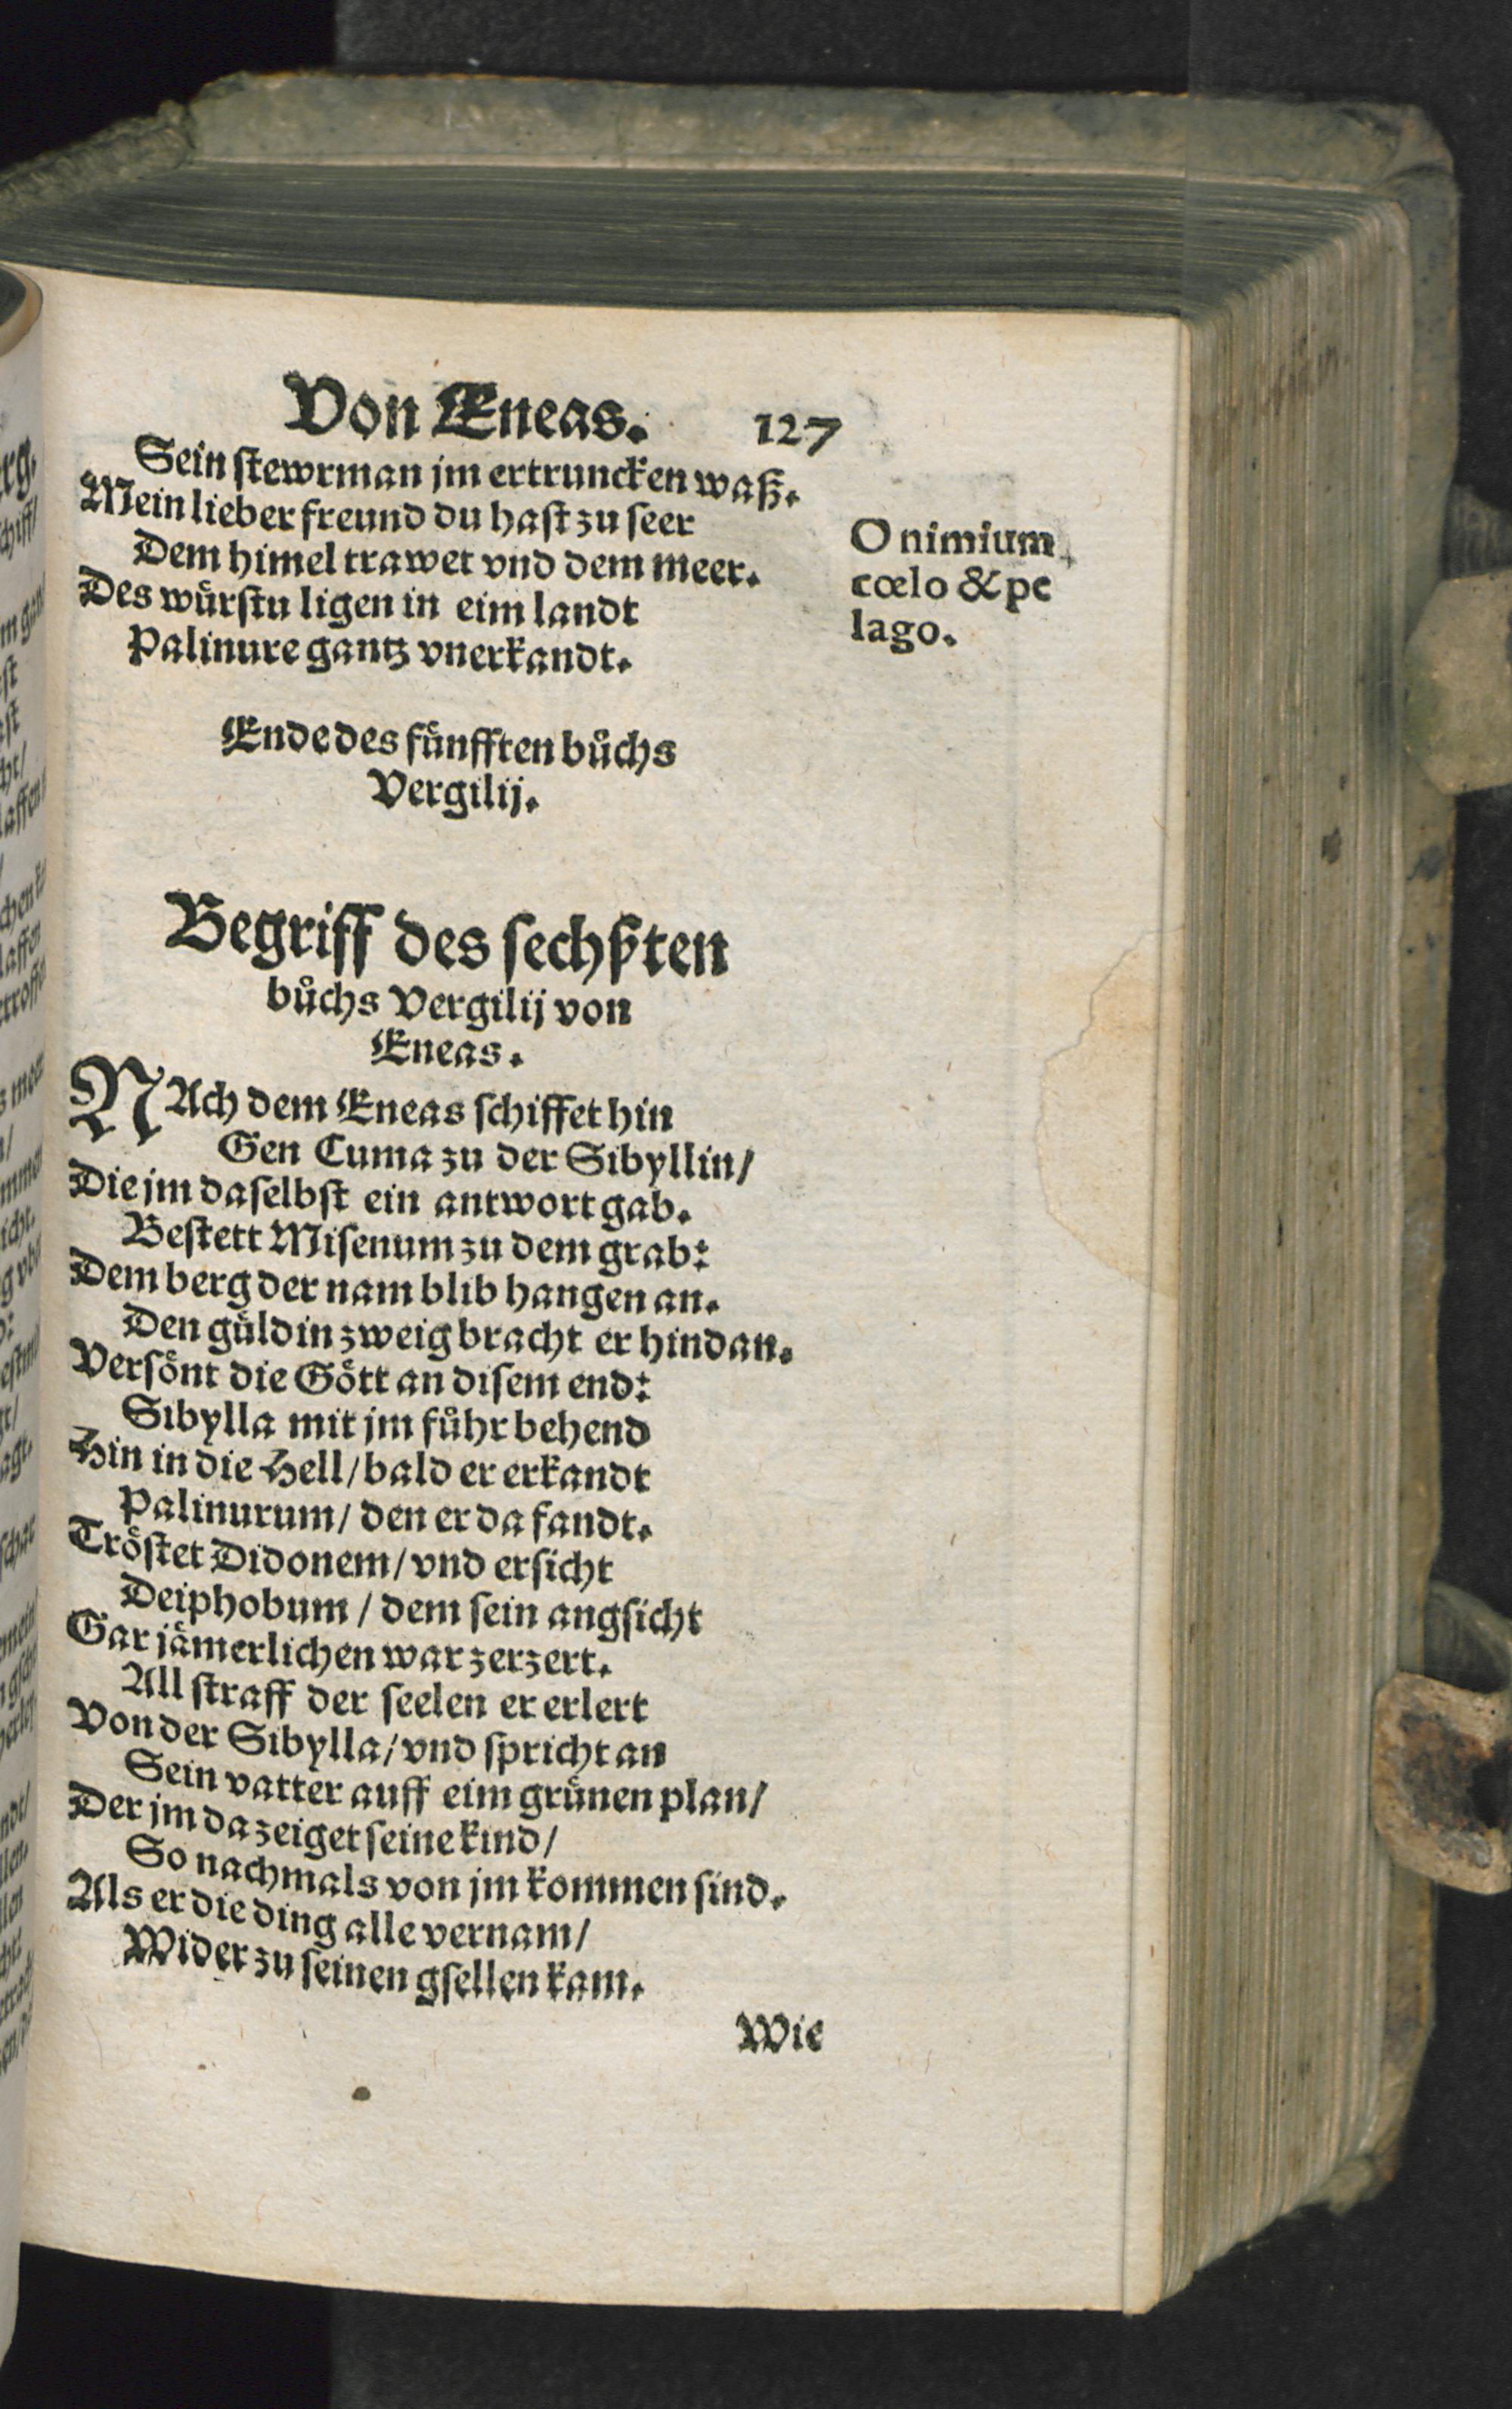 Von Eneas. 127
Sein stewrman jm ertruncken waß.
Mein lieber freund du hast zu seer
Dem himel trawet vnd dem meer.
Des würstu ligen in eim landt
Palinure gantz vnerkandt.
O nimium
cœlo & pe
lago.
Ende des fünfften bůchs
Vergilij.
Begriff des sechßten
bůchs Vergilij von
Eneas.
NAch dem Eneas schiffet hin
Gen Cuma zu der Sibyllin/
Die jm daselbst ein antwort gab.
Bestett Misenum zu dem grab:
Dem berg der nam blib hangen an.
Den güldin zweig bracht er hindan.
Versönt die Gött an disem end:
Sibylla mit jm fůhr behend
Hin in die Hell/ bald er erkandt
Palinurum/ den er da fandt.
Tröstet Didonem/ vnd ersicht
Deiphobum/ dem sein angsicht
Gar jämerlichen war zerzert.
All straff der seelen er erlert
Von der Sibylla/ vnd spricht an
Sein vatter auff eim grünen plan/
Der jm da zeiget seine kind/
So nachmals von jm kommen sind.
Als er die ding alle vernam/
Wider zu seinen gsellen kam.
Wie